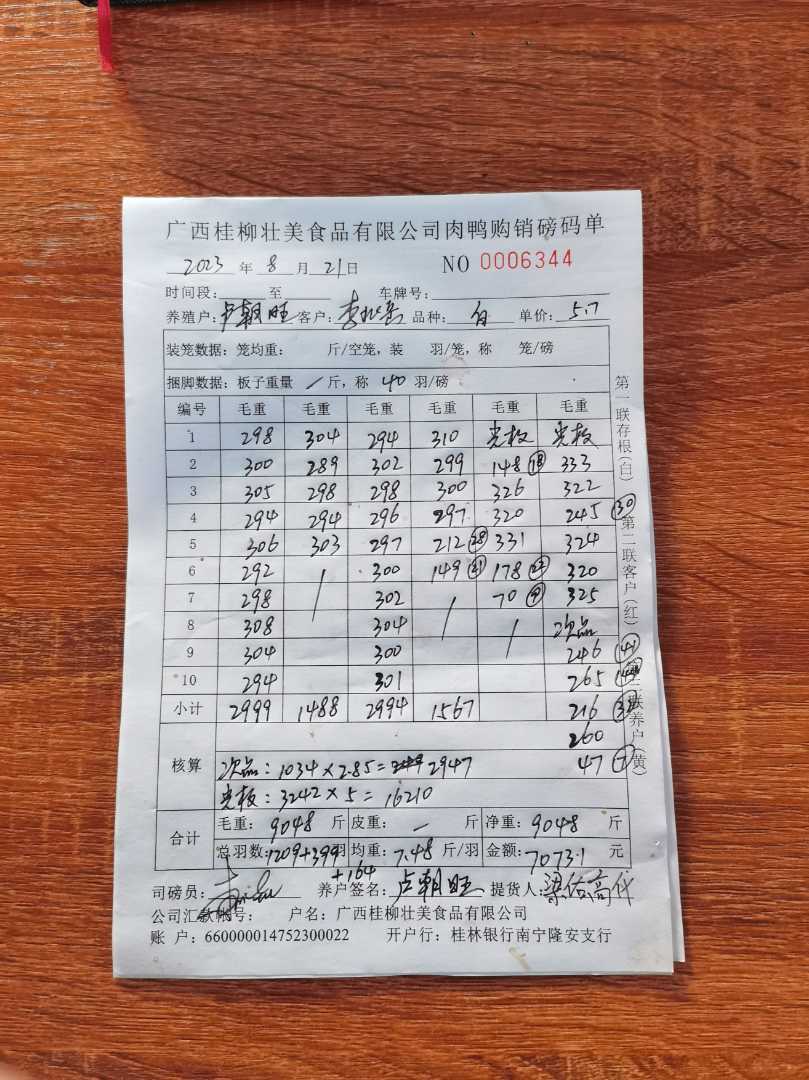 广西桂柳壮美食品有限公司肉鸭购销磅码单
2023 年 8 月 21 日 NO 0006344
时间段: 至 车牌号:
养殖户: 卢朝旺 客户: 品种: 白 单价: 5.7
装笼数据: 笼均重: 斤/空笼, 装 羽/笼, 称 笼/磅
捆脚数据: 板子重量 / 斤, 称 40 羽/磅
编号 毛重 毛重 毛重 毛重 毛重 毛重
1 298 304 294 310 光板 光板
2 300 289 302 299 148 (18) 333
3 305 298 298 300 326 322
4 294 294 296 297 320 245 (30)
5 306 303 297 212 (28) 331 324
6 292 / 300 149 (21) 178 (22) 320
7 298 302 / 70 (9) 325
8 308 304 / 次品
9 304 300 246 (41)
10 294 301 265
小计 2999 1488 2994 1567 216
260
核算 次品: 1034 × 2.85 = 2947 47 (7)
光板: 3242 × 5 = 16210
合计 毛重: 9048 斤 皮重: — 斤 净重: 9048 斤
总羽数: 1209+399 羽 均重: 7.48 斤/羽 金额: 7073.1 元
+164
司磅员: 养户签名: 卢朝旺 提货人:
公司汇款帐号: 户名: 广西桂柳壮美食品有限公司
账 户: 660000014752300022 开户行: 桂林银行南宁隆安支行
第一联存根(白) 第二联客户(红) 第三联养户(黄)